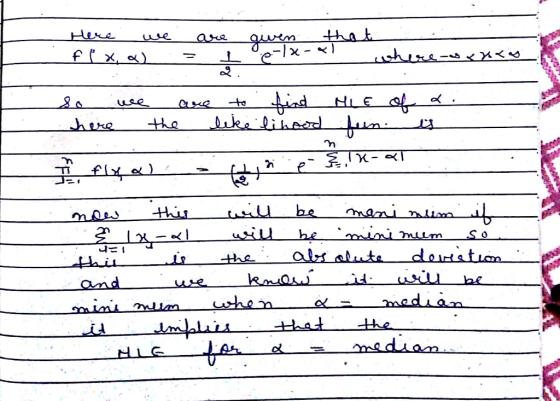 Here we are given that
f(x, α) = 1/2 e^-|x - α| where -∞ < x < ∞
So we are to find MLE of α.
here the likelihood fun. is
n∏j=1 f(x, α) = (1/2)^n e^- n∑j=1 |x - α|
now this will be maximum if
n∑j=1 |xj - α| will be minimum so
this is the absolute deviation
and we know it will be
minimum when α = median
it implies that the
MLE for α = median.